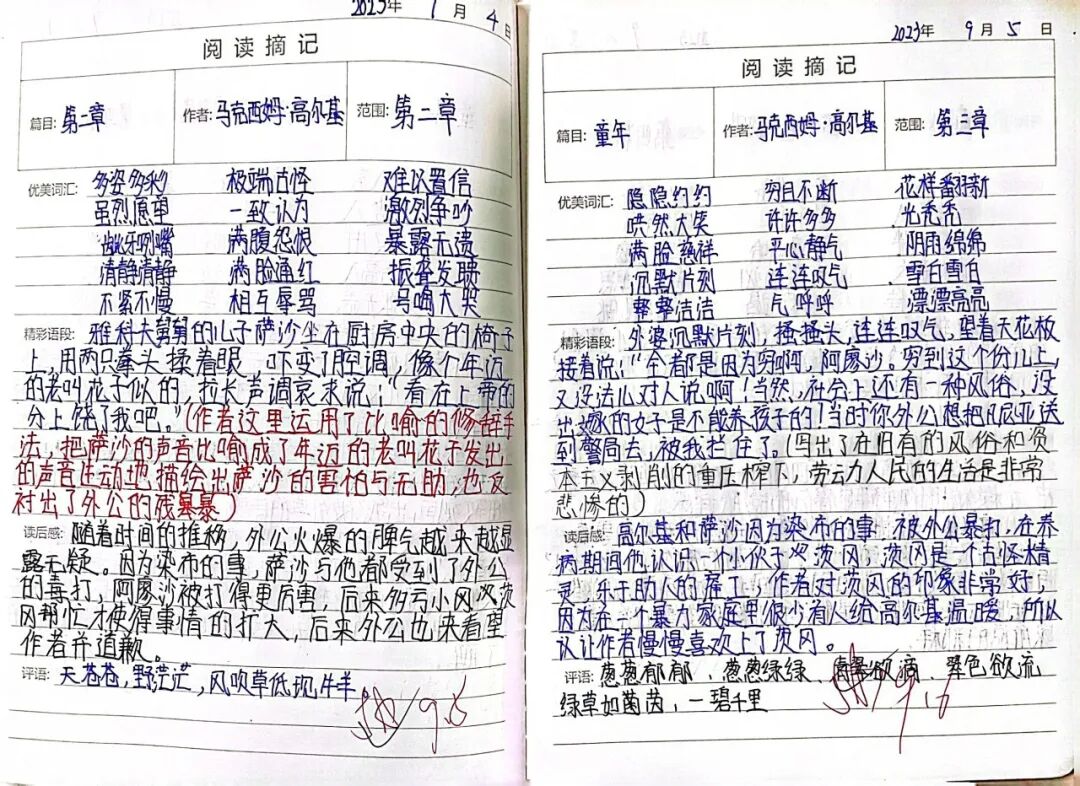 2023年 1月4日
阅读摘记
篇目: 第一章 作者: 马克西姆·高尔基 范围: 第二章
优美词汇: 多姿多彩 极端古怪 难以置信
虽烈愿草 一致认为 激烈争吵
龇牙咧嘴 满腹怨恨 暴露无遗
清静清静 满脸通红 振聋发聩
不紧不慢 相互辱骂 号啕大哭
精彩语段: 雅科夫舅舅的儿子萨沙坐在厨房中央的椅子
上,用两只拳头揉着眼,吓变了腔调,像个年迈
的老叫花子似的,拉长声调哀求说:“看在上帝的
分上饶了我吧。”(作者这里运用了比喻的修辞手
法,把萨沙的声音比喻成了年迈的老叫花子发出
的声音生动地描绘出萨沙的害怕与无助,也反
衬出了外公的残暴)
读后感: 随着时间的推移,外公火爆的脾气越来越显
露无疑。因为染布的事,萨沙与他都受到了外公
的毒打,阿廖沙被打得更厉害,后来多亏小冈以茨
冈帮忙才使得事情的扩大,后来外公也来看望
作者并道歉。
评语: 天苍苍,野茫茫,风吹草低现牛羊
9.5
2023年 9月5日
阅读摘记
篇目: 童年 作者: 马克西姆·高尔基 范围: 第三章
优美词汇: 隐隐约约 穷且不断 花样翻新
哄然大笑 许许多多 光秃秃
满脸慈祥 平心静气 阴雨绵绵
沉默片刻 连连叹气 雪白雪白
整整洁洁 气呼呼 漂漂亮亮
精彩语段: 外婆沉默片刻,搔搔头,连连叹气,望着天花板
接着说:“全都是因为穷啊,阿廖沙。穷到这个份儿上,
又没法儿对人说啊!当然,社会上还有一种风俗,没
出嫁的女子是不能养孩子的!当时你外公想把凡尼亚送
到警局去,被我拦住了。(写出了在旧有的风俗和资
本主义剥削的重压榨下,劳动力人民的生活是非常
悲惨的)
读后感: 高尔基和萨沙因为染布的事,被外公暴打,在养
病期间他认识一个小伙子叫茨冈,茨冈是个古怪精
灵、乐于助人的雇工,作者对茨冈的印象非常好,
因为在一个暴力家庭里很少有人给高尔基温暖,所以
以让作者慢慢喜欢上了茨冈。
评语: 葱葱郁郁、葱葱绿绿、翠色欲流
绿草如茵茵,一碧千里
9.6